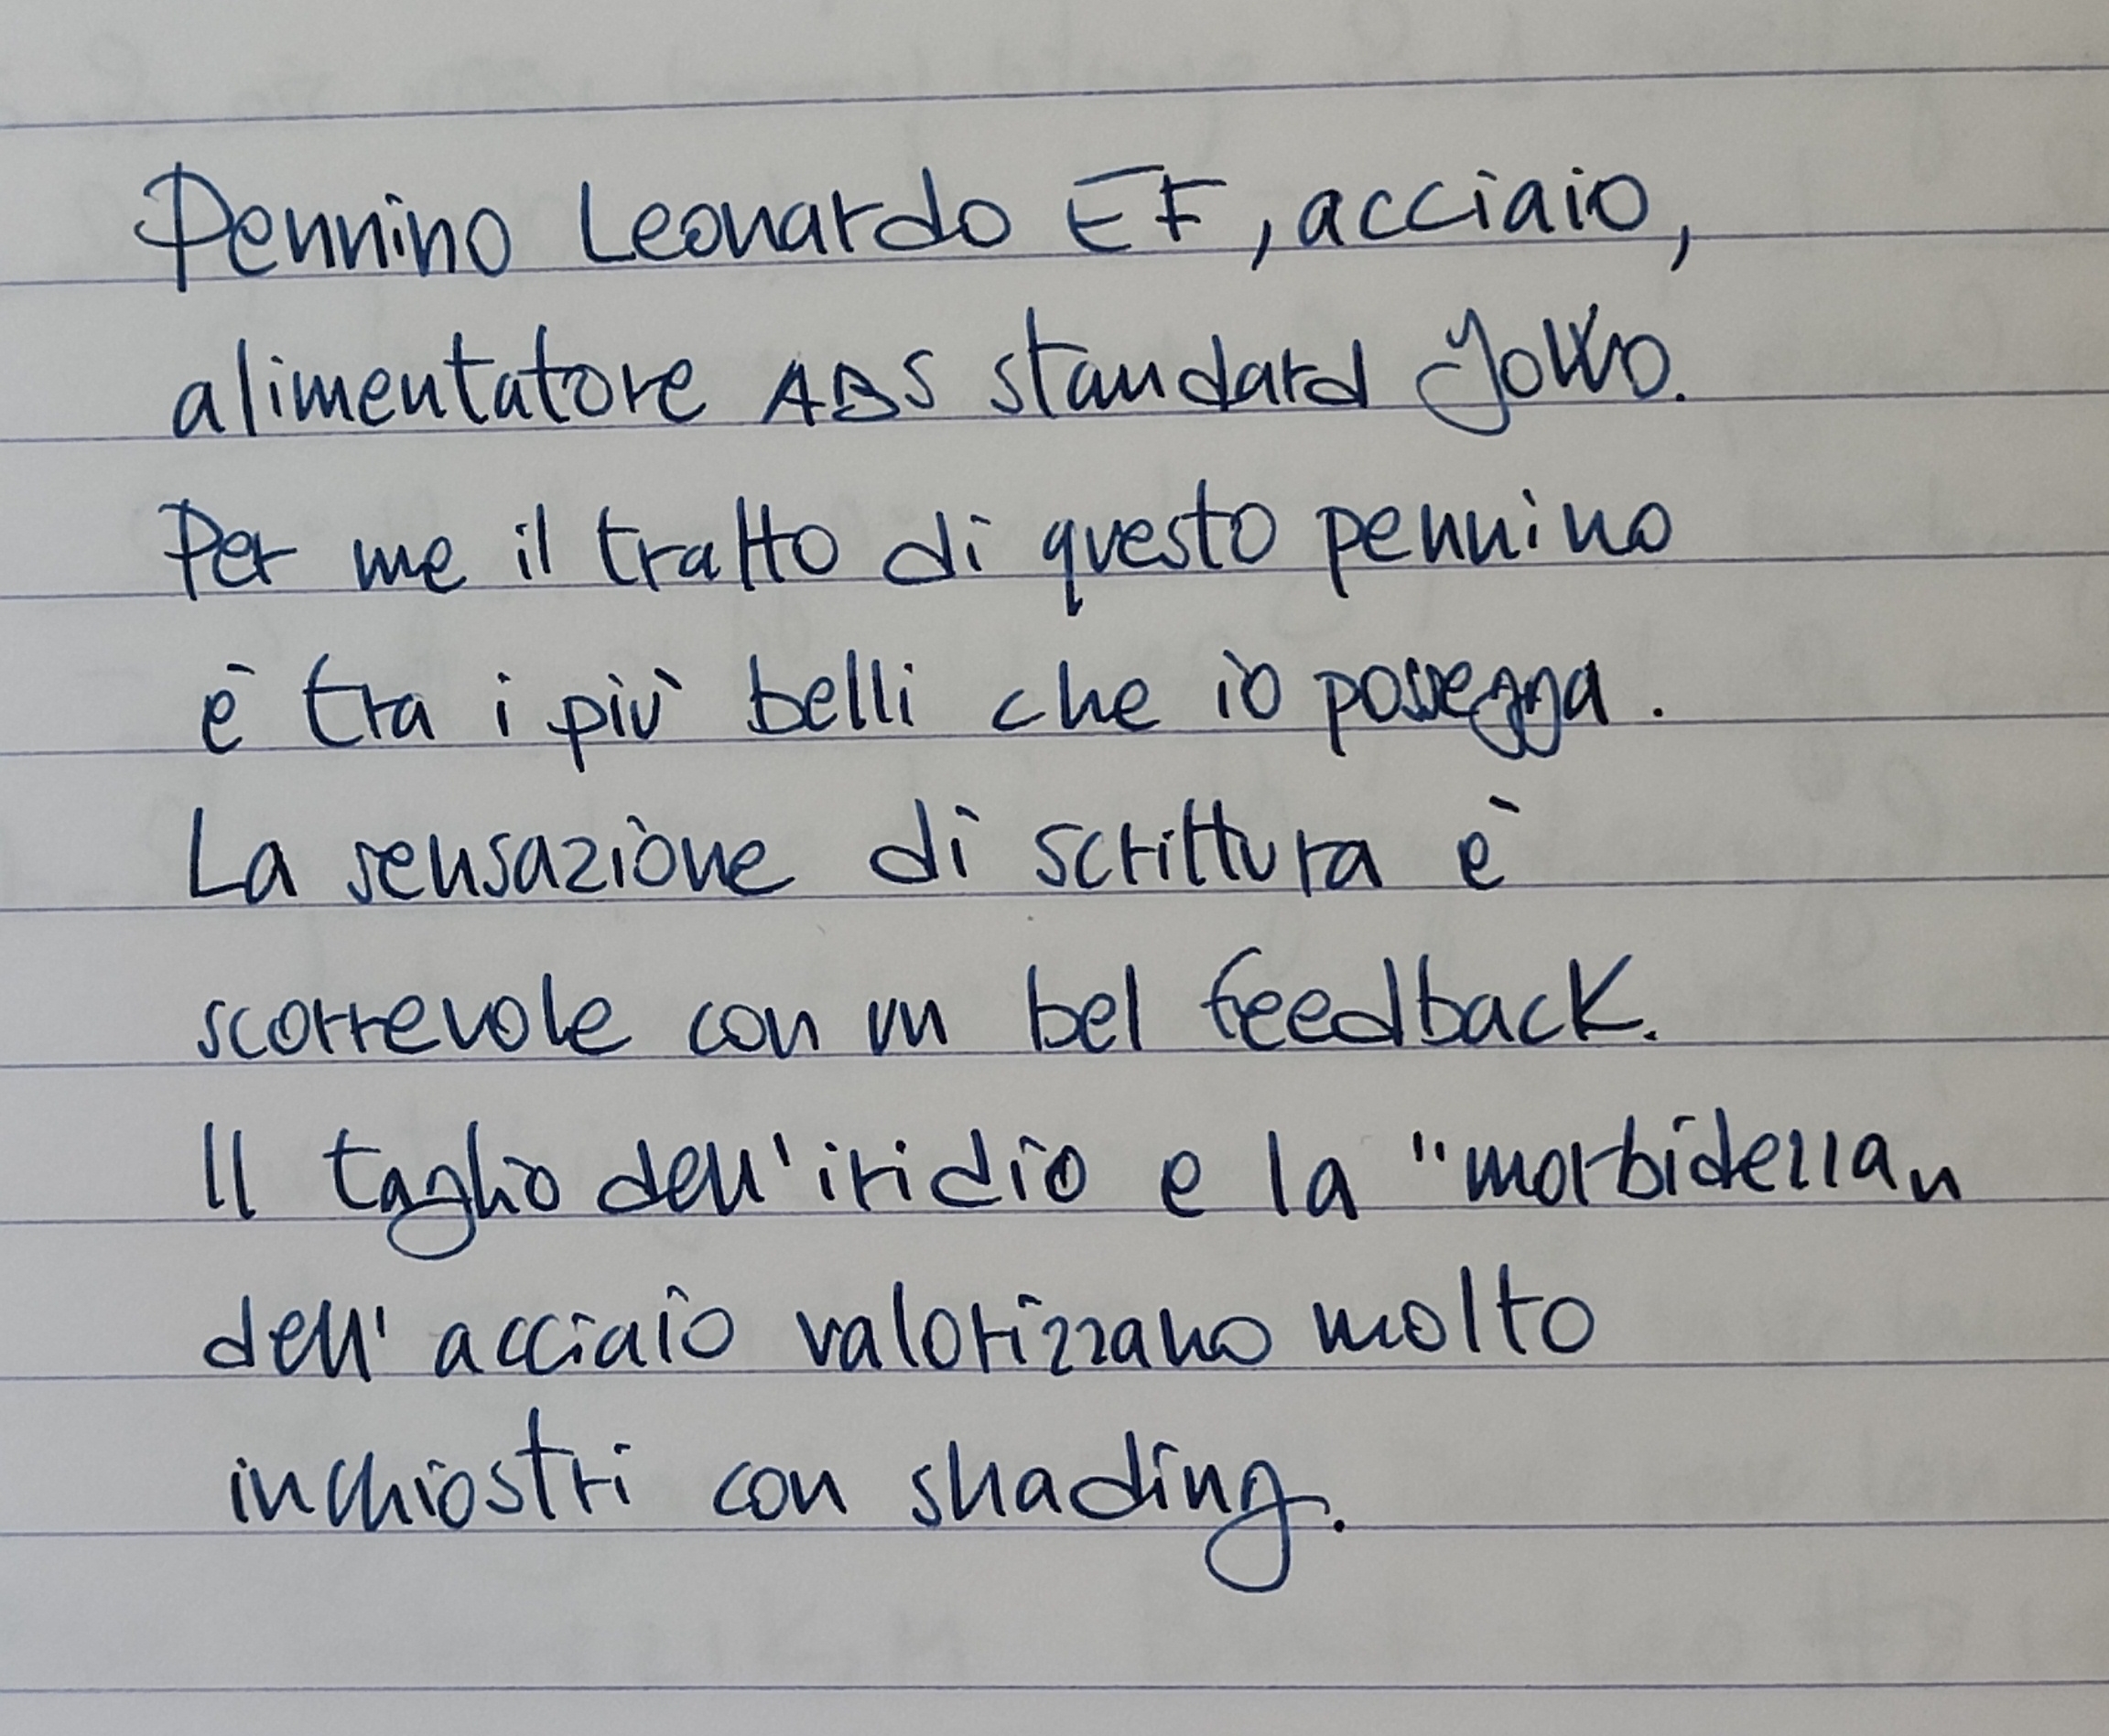 Pennino Leonardo EF, acciaio,
alimentatore ABS standard JoWo.
Per me il tratto di questo pennino
è tra i più belli che io possegga.
La sensazione di scrittura è
scorrevole con un bel feedback.
Il taglio dell'iridio e la "morbidezza"
dell'acciaio valorizzano molto
inchiostri con shading.